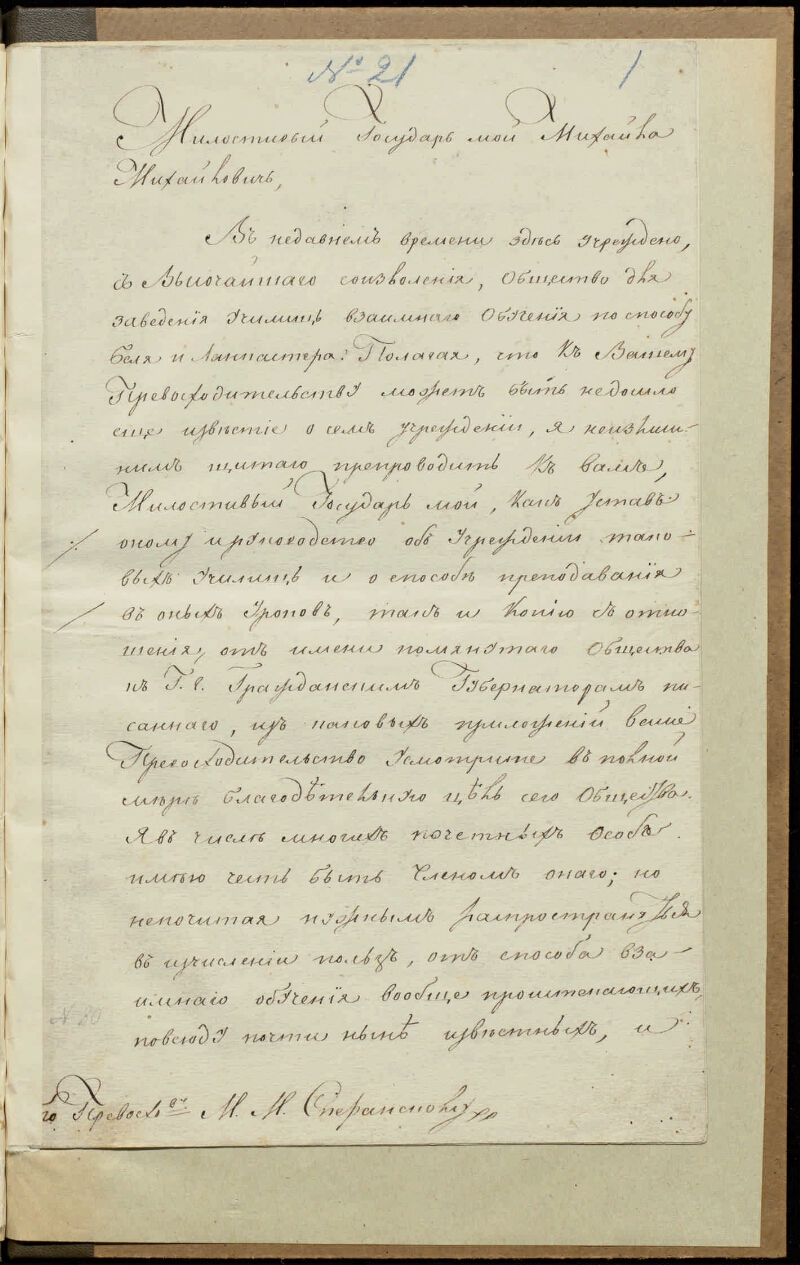 № 21 1
Милостивый Государь мой Михайла
Михайловичь,
Въ недавнемъ времени здѣсь учреждено,
съ Высочайшаго соизволенія, Общество для
заведенія Училищъ взаимнаго Обученія по способу
Беля и Ланкастера. Полагая, что къ Вашему
Превосходительству можетъ быть недошло
еще извѣстіе о семъ учрежденіи, я неизлиш-
нимъ щитаю препроводить къ вамъ,
Милостивый Государь мой, какъ Уставъ
оному и руководство объ Учрежденіи тако-
выхъ Училищъ и о способѣ преподаванія
въ оныхъ Уроковъ, такъ и Копію съ отно-
шенія, отъ имени помянутаго Общества
къ Г. Г. Гражданскимъ Губернаторамъ пи-
саннаго, изъ каковыхъ приложеній ваше
Превосходительство Усмотрите въ полной
мѣрѣ благодѣтельную цѣль сего Общества.
Я въ числѣ многихъ почетныхъ Особъ
имѣю честь быть Членомъ онаго; но
непочитая нужнымъ распространяться
въ изчисленіи пользъ, отъ способа вза-
имнаго обученія вообще проистекающихъ,
повсюду почти нынѣ извѣстныхъ, и
№ 80
го Превосх-ву М. М. Сперанскому